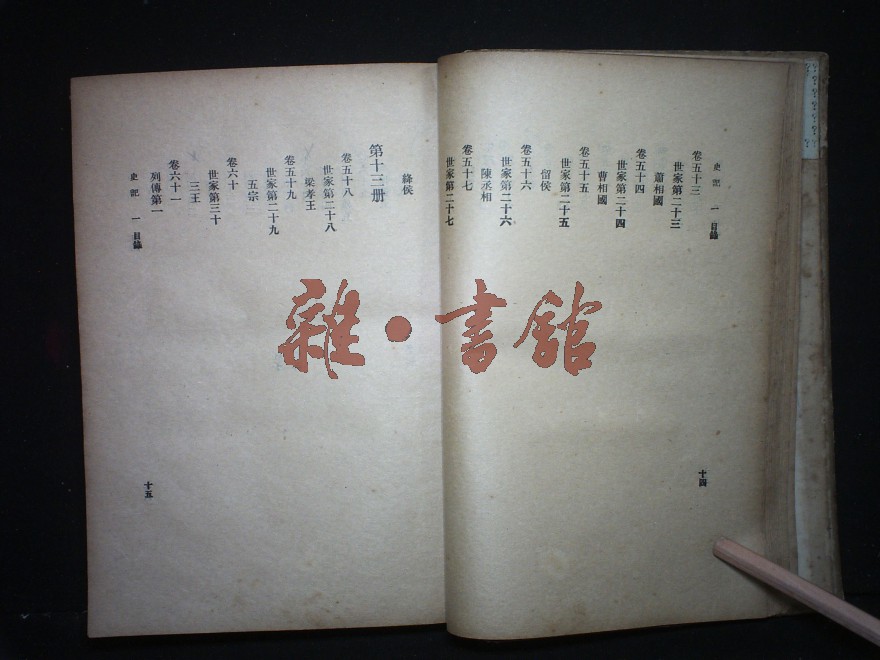 史記 一 目錄
卷五十三
世家第二十三
蕭相國
卷五十四
世家第二十四
曹相國
卷五十五
世家第二十五
留侯
卷五十六
世家第二十六
陳丞相
卷五十七
世家第二十七
十四
絳侯
第十三册
卷五十八
世家第二十八
梁孝王
卷五十九
世家第二十九
五宗
卷六十
世家第三十
三王
卷六十一
列傳第一
史記 一 目錄
十五
雜·書館